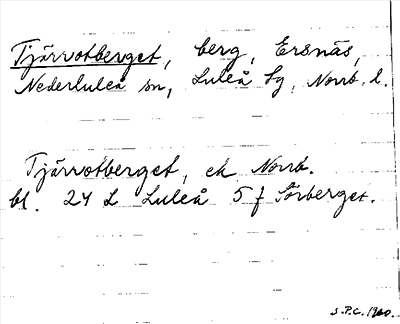 Tjärrotberget, berg, Ersnäs,
Nederluleå sn, Luleå tg, Norrb. l.
Tjärrotberget, ek Norrb.
bl. 24 L Luleå 5 f Sörberget.
S.P.C. 1960.